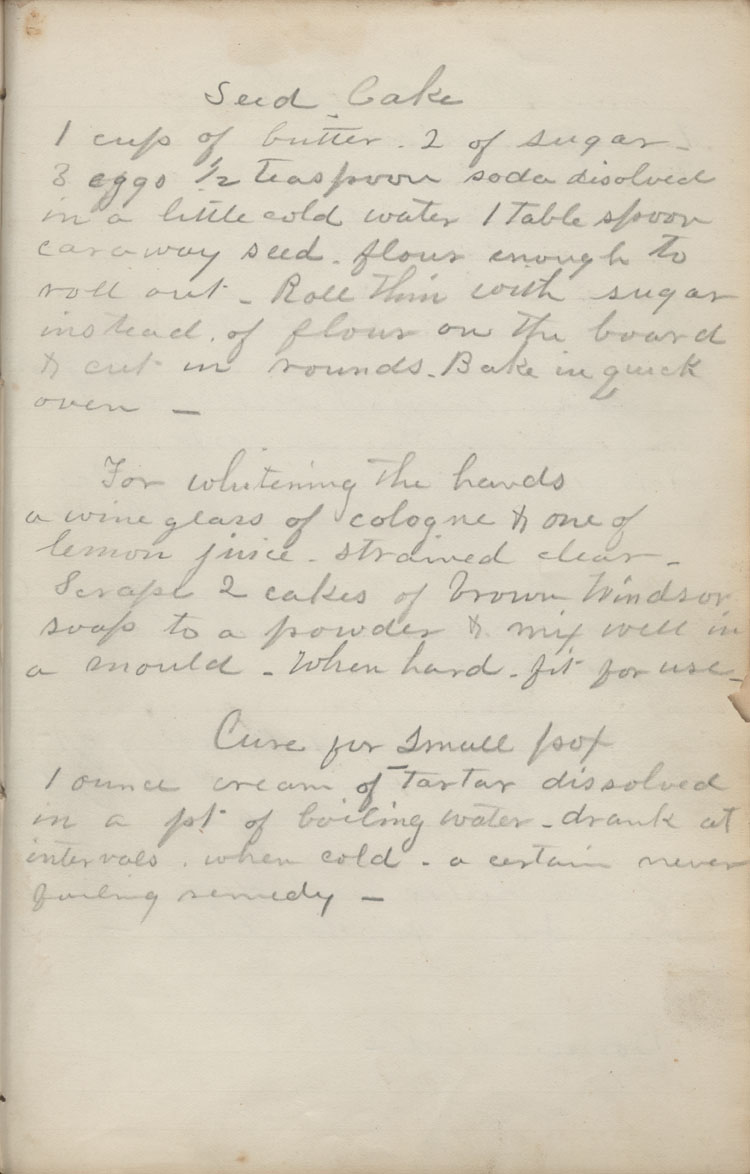 Seed Cake
1 cup of butter. 2 of sugar -
3 eggs 1/2 teaspoon soda disolved
in a little cold water 1 table spoon
caraway seed - flour enough to
roll out - Roll thin with sugar
instead of flour on the board
& cut in rounds - Bake in quick
oven -
For whitening the hands
a wine glass of cologne & one of
lemon juice - strained clear -
Scrape 2 cakes of brown Windsor
soap to a powder & mix well in
a mould - When hard - fit for use -
Cure for Small pox
1 ounce cream of tartar dissolved
in a pt of boiling water - drank at
intervals. when cold - a certain never
failing remedy -